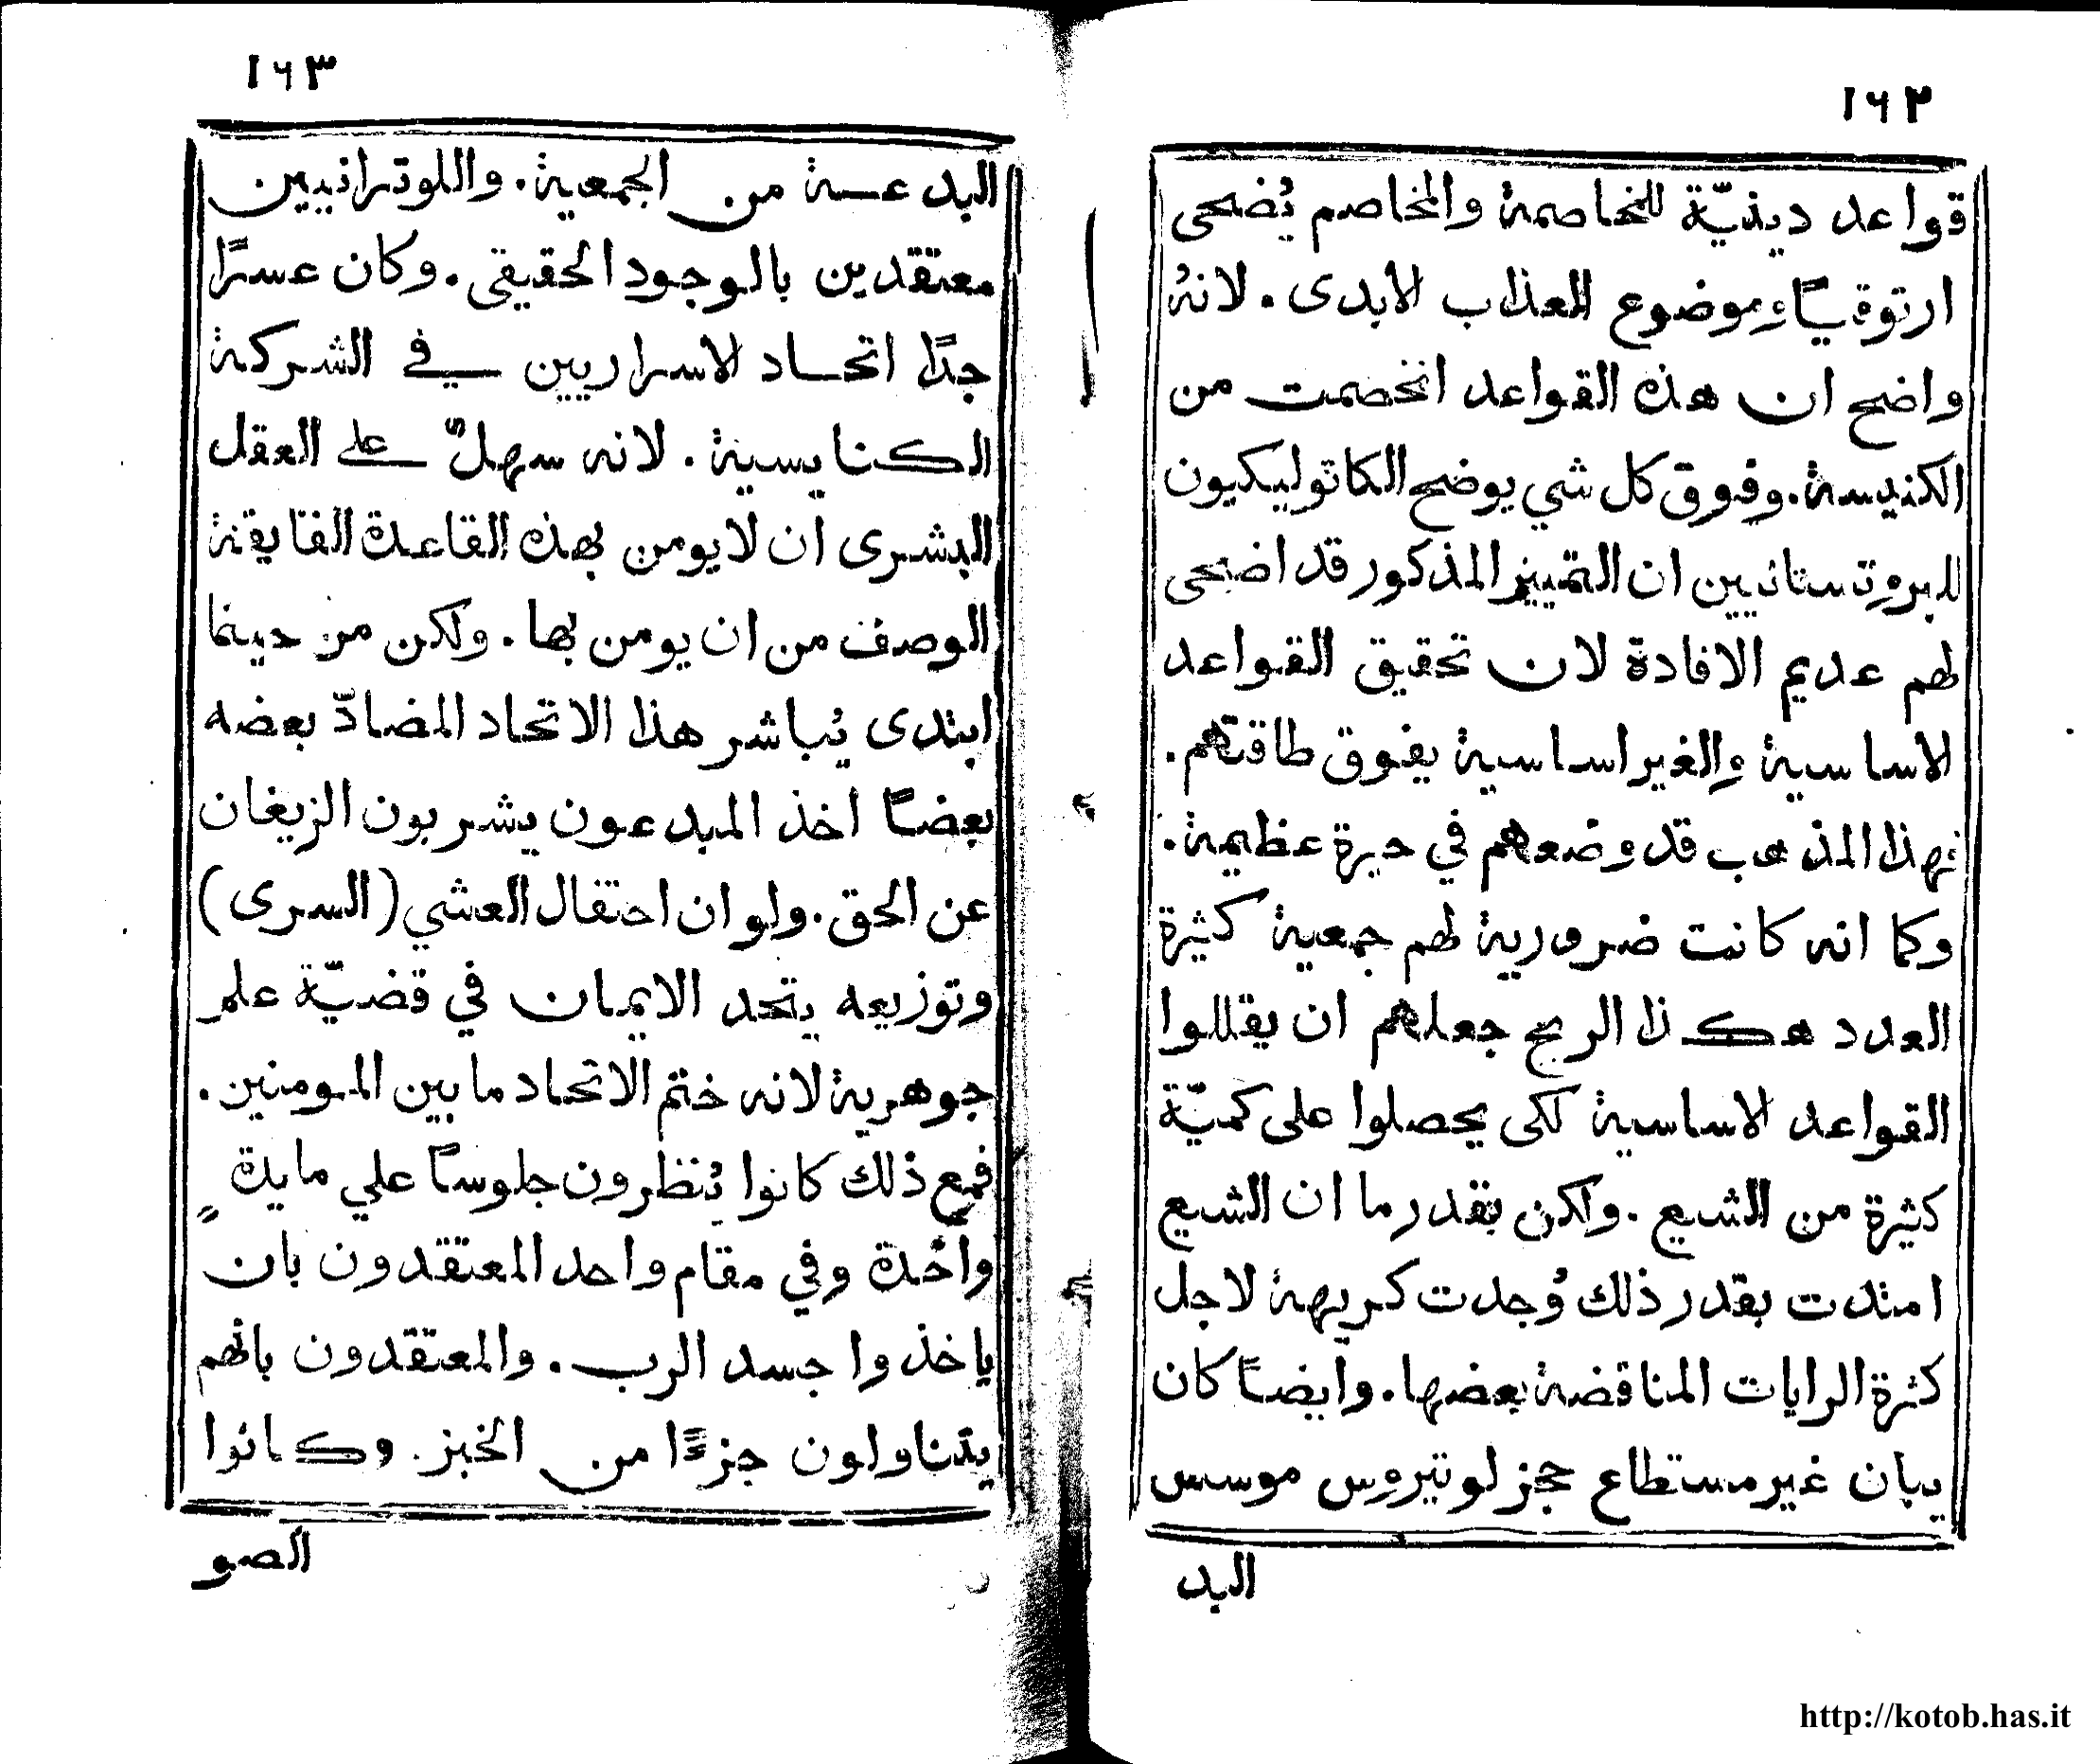 ١٦٢
قواعد دينيّة للمخاصمة والمخاصم يُضحى
ارتوقيًا وموضوع العذاب الابدى . لانهُ
واضح ان هذه القواعد انخصمت من
الكنيسة . وفوق كل شي يوضح الكاتوليكيون
للبروتستانيين ان التمييز المذكور قد اضحى
لهم عديم الافادة لان تحقيق القواعد
الاساسية والغير اساسية يفوق طاقتهم .
فهذا المذهب قد وضعهم في حيرة عظيمة .
وكما انه كانت ضرورية لهم جمعية كثيرة
العدد هكذا الربح جعلهم ان يقللوا
القواعد الاساسية لكى يحصلوا على كميّة
كثيرة من الشيع . ولكن بقدر ما ان الشيع
امتدت بقدر ذلك وُجدت كريهة لاجل
كثرة الرايات المناقضة بعضها . وايضًا كان
يبان غير مستطاع حجز لوتيروس موسس
البد
١٦٣
البدعسة من الجمعية . واللوترانيين
معتقدين بالوجود الحقيقى . وكان عسرًا
جدًا اتحاد الاسراريين في الشركة
الكنايسية . لانه سهلٌ على العقل
البشرى ان لا يومن بهذه القاعدة الفايقة
الوصف من ان يومن بها . ولكن من حينما
ابتدى يُباشر هذا الاتحاد المضادّ بعضه
بعضًا اخذ المبدعون يشربون الزيغان
عن الحق . ولو ان احتفال العشي ( السرى )
وتوزيعه يتحد الايمان في قضيّة علم
جوهرية لانه ختم الاتحاد ما بين المومنين .
فمع ذلك كانوا يُنظرون جلوسًا علي مايدةٍ
واحدة وفي مقام واحد المعتقدون بان
ياخذوا جسد الرب . والمعتقدون بانهم
يتناولون جزءًا من الخبز . وكانوا
الصو
http://kotob.has.it